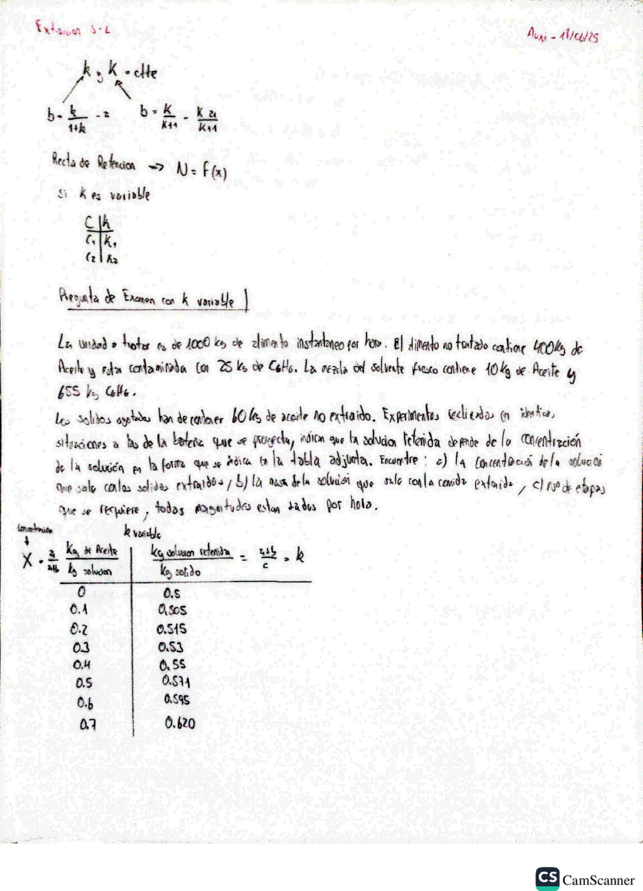 Extracion S-L
Auxi - 18/06/25
k y K = ctte
b = k/1+k - z    b = K/K+1 - K z1/K+1
Recta de Retencion → N = f(x)
Si K es variable
C | K
C1 | K1
C2 | K2
Pregunta de Examen con k variable
La unidad a tratar es de 1000 kg de alimento instantaneo por hora. El alimento no tratado contiene 400kg de
Aceite y esta contaminada con 25 kg de C6H6. La mezcla del solvente fresco contiene 10kg de Aceite y
655 kg C6H6.
Los solidos agotados han de contener 60kg de aceite no extraido. Experimentos realizados en identica,
situaciones a las de la bateria que se proyecta, indican que la solucion retenida depende de la concentración
de la solución en la forma que se indica en la tabla adjunta. Encuentre: a) la concentración de la solucion
que sale con los solidos extraidos, b) la masa de la solución que sale con la comida extraida, c) nro de etapas
que se requiere, todas magnitudes estan dadas por hora.
concentracion
k variable
X = a/a+b Kg de Aceite/kg solucion | kg solucion retenida/kg solido = a+b/c = k
0 | 0.5
0.1 | 0.505
0.2 | 0.515
0.3 | 0.53
0.4 | 0.55
0.5 | 0.571
0.6 | 0.595
0.7 | 0.620
CS CamScanner